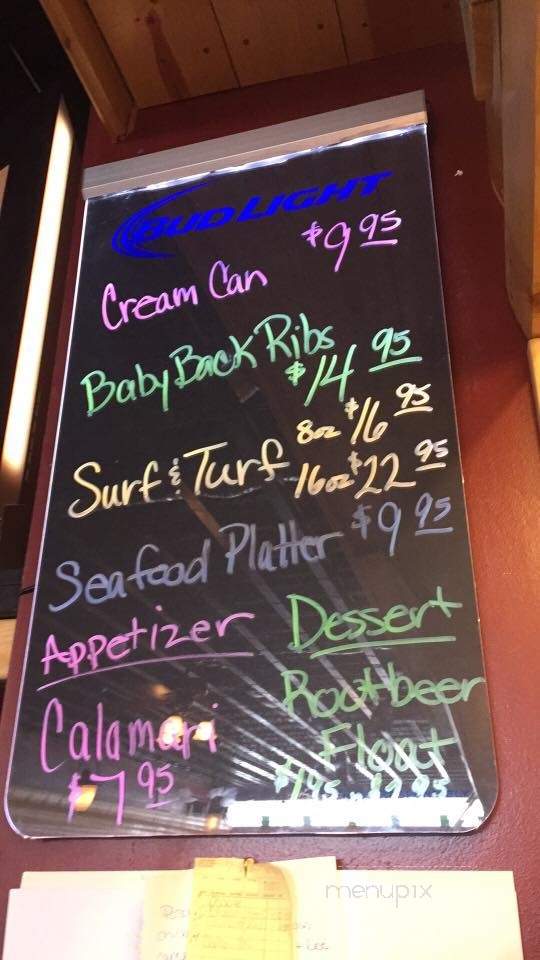 BUD LIGHT
Cream Can $9 95
Baby Back Ribs
$14 95
Surf & Turf 8oz $16 95
16oz $22 95
Seafood Platter $9 95
Appetizer
Calamari
$7 95
Dessert
Rootbeer
Float
menupix